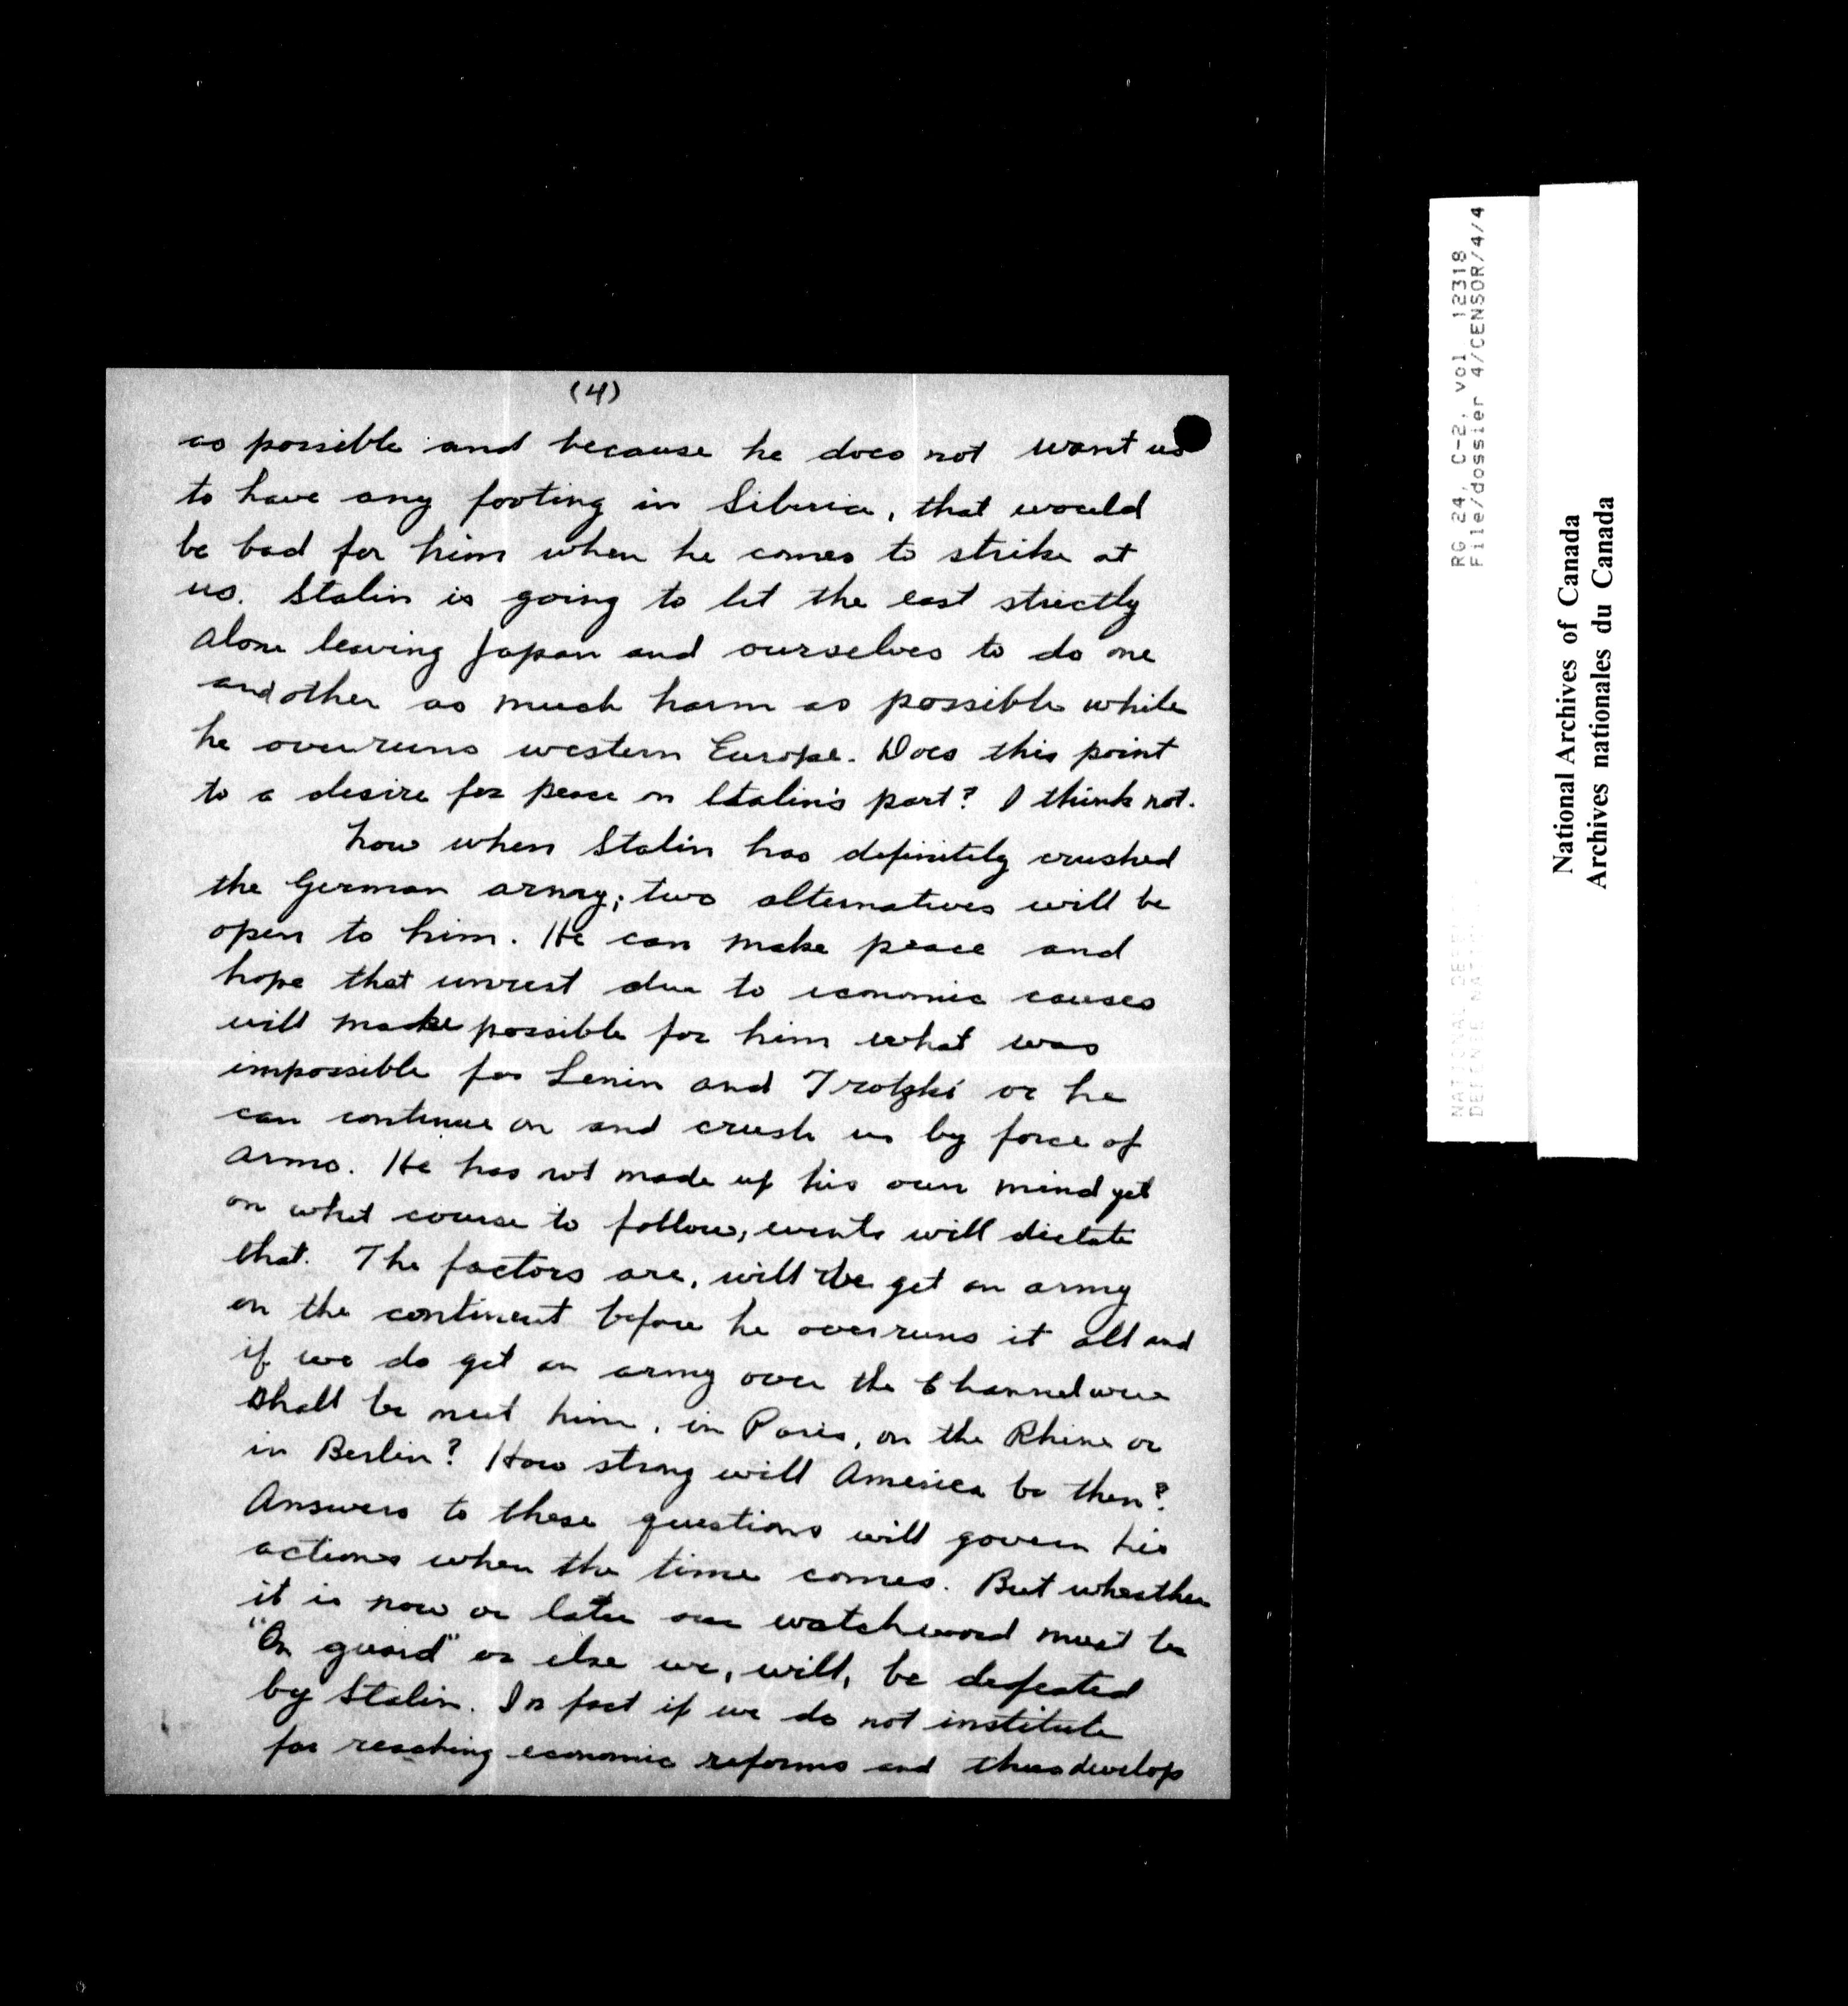 (4)
as possible and because he does not want us
to have any footing in Siberia, that would
be bad for him when he comes to strike at
us. Stalin is going to let the east strictly
alone leaving Japan and ourselves to do one
andother as much harm as possible while
he overruns western Europe. Does this point
to a desire for peace on Stalin's part? I think not.
Now when Stalin has definitely crushed
the German army; two alternatives will be
open to him. He can make peace and
hope that unrest due to economic causes
will make possible for him what was
impossible for Lenin and Trotzki or he
can continue on and crush us by force of
arms. He has not made up his own mind yet
on what course to follow, events will dictate
that. The factors are, will we get an army
on the continent before he overruns it all and
if we do get an army over the Channel were
shall be meet him, in Paris, on the Rhine or
in Berlin? How strong will America be then?
Answers to these questions will govern his
actions when the time comes. But wheather
it is now or later our watchword must be
"On guard" or else we, will, be defeated
by Stalin. In fact if we do not institute
far reaching economic reforms and thus develop
RG 24, C-2, vol 12318
File/dossier 4/CENSOR/4/4
National Archives of Canada
Archives nationales du Canada